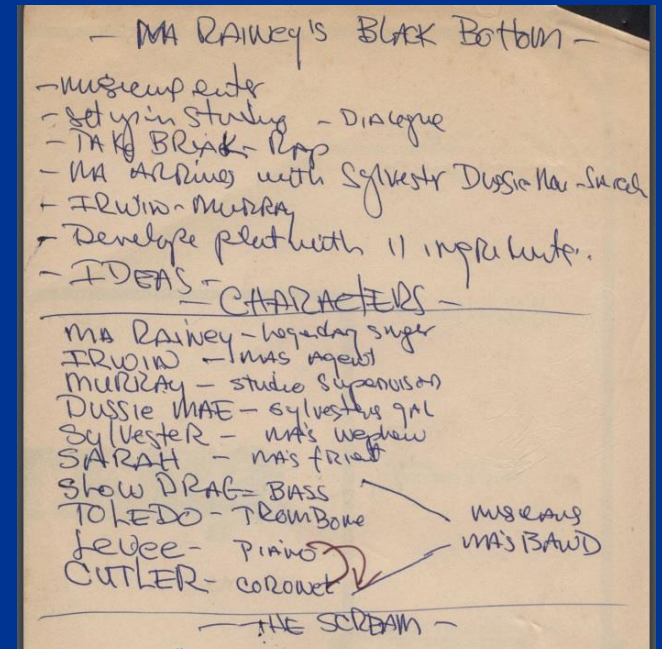 - MA RAINEY'S BLACK BOTTOM -
- musicians enter
- set up in studio - DIALOGUE
- TAKE BREAK - RAP
- MA ARRIVES with Sylvestr Dussie Mae - Sarah
- IRWIN - MURRAY
- Develope plot with 11 ingredients.
- IDEAS -
- CHARACTERS -
MA RAINEY - legendary singer
IRWIN - MAS Agent
MURRAY - studio supervisor
DUSSIE MAE - Sylvesters gal
SylvesteR - MA's nephew
SARAH - MA's friend
SLOW DRAG = BASS
TOLEDO - TROMBONE
Levee - PIANO
CUTLER - CORONET
musicians
MA'S BAND
- THE SCREAM -